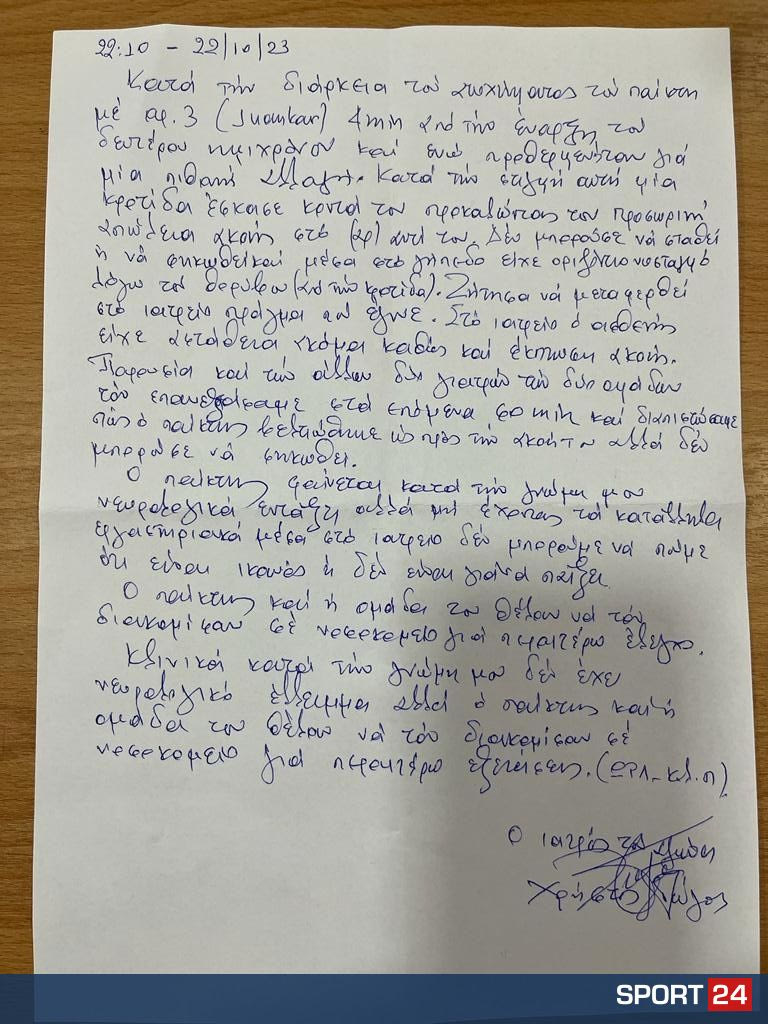 22:10 – 22/10/23
Κατά την διάρκεια του ατυχήματος του παίκτη
με αρ. 3 (Juankar) 4 min από την έναρξη του
δευτέρου ημιχρόνου και ενώ προθερμενόταν για
μία πιθανή αλλαγή. Κατά την στιγμή αυτή μία
κροτίδα έσκασε κοντά του προκαλώντας του προσωρινή
απώλεια ακοής στο (αρ) αυτί του. Δεν μπορούσε να σταθεί
ή να σηκωθεί και μέσα στο γήπεδο είχε οριζόντιο νυσταγμό
λόγω του θορύβου (από την κροτίδα). Ζήτησα να μεταφερθεί
στο ιατρείο πράγμα που έγινε. Στο ιατρείο ο ασθενής
είχε αστάθεια ακόμα καθώς και έκπτωση ακοής.
Παρουσία και των άλλων δύο γιατρών των δύο ομάδων
τον επανεξετάσαμε στα επόμενα min και διαπιστώσαμε
πως ο παίκτης βελτιώθηκε ως προς την ακοή αλλά δεν
μπορούσε να σηκωθεί.
Ο παίκτης φαίνεται κατά την γνώμη μου
νευρολογικά εντάξει αλλά μη έχοντας τα κατάλληλα
εργαστηριακά μέσα στο ιατρείο δεν μπορούμε να πούμε
ότι είναι ικανός ή δεν είναι για να παίξει.
Ο παίκτης και η ομάδα του θέλουν να τον
διακομίσουν σε νοσοκομείο για περαιτέρω έλεγχο.
Κλινικά κατά την γνώμη μου δεν έχει
νευρολογικό έλλειμμα αλλά ο παίκτης και η
ομάδα του θέλουν να τον διακομίσουν σε
νοσοκομείο για περαιτέρω εξετάσεις. (ΩΡΛ - κλ.π)
Ο ιατρός του αγώνα
Χρήστος
SPORT 24